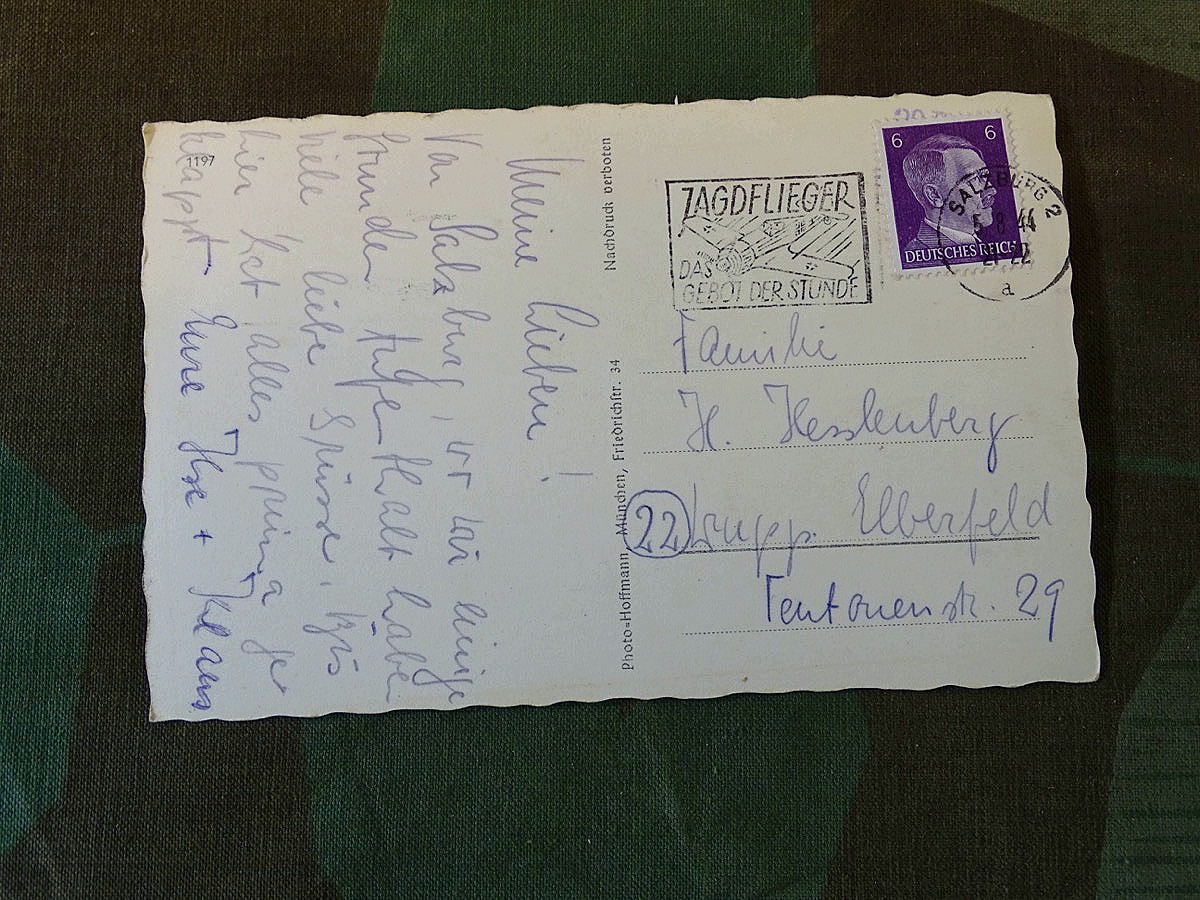 1197
Meine Lieben!
Von Salzburg, wo wir einige
Stunden Aufenthalt haben
viele liebe Grüsse. Bis
hier hat alles prima ge
klappt. Eure Ilse + Klaus
Nachdruck verboten
Photo=Hoffmann, München, Friedrichstr. 34
JAGDFLIEGER
DAS
GEBOT DER STUNDE
6 6
DEUTSCHES REICH
SALZBURG 2
5 8 44
21-22
a
Familie
H. Hesslenberg
(22) Wupp. Elberfeld
Teutonenstr. 29